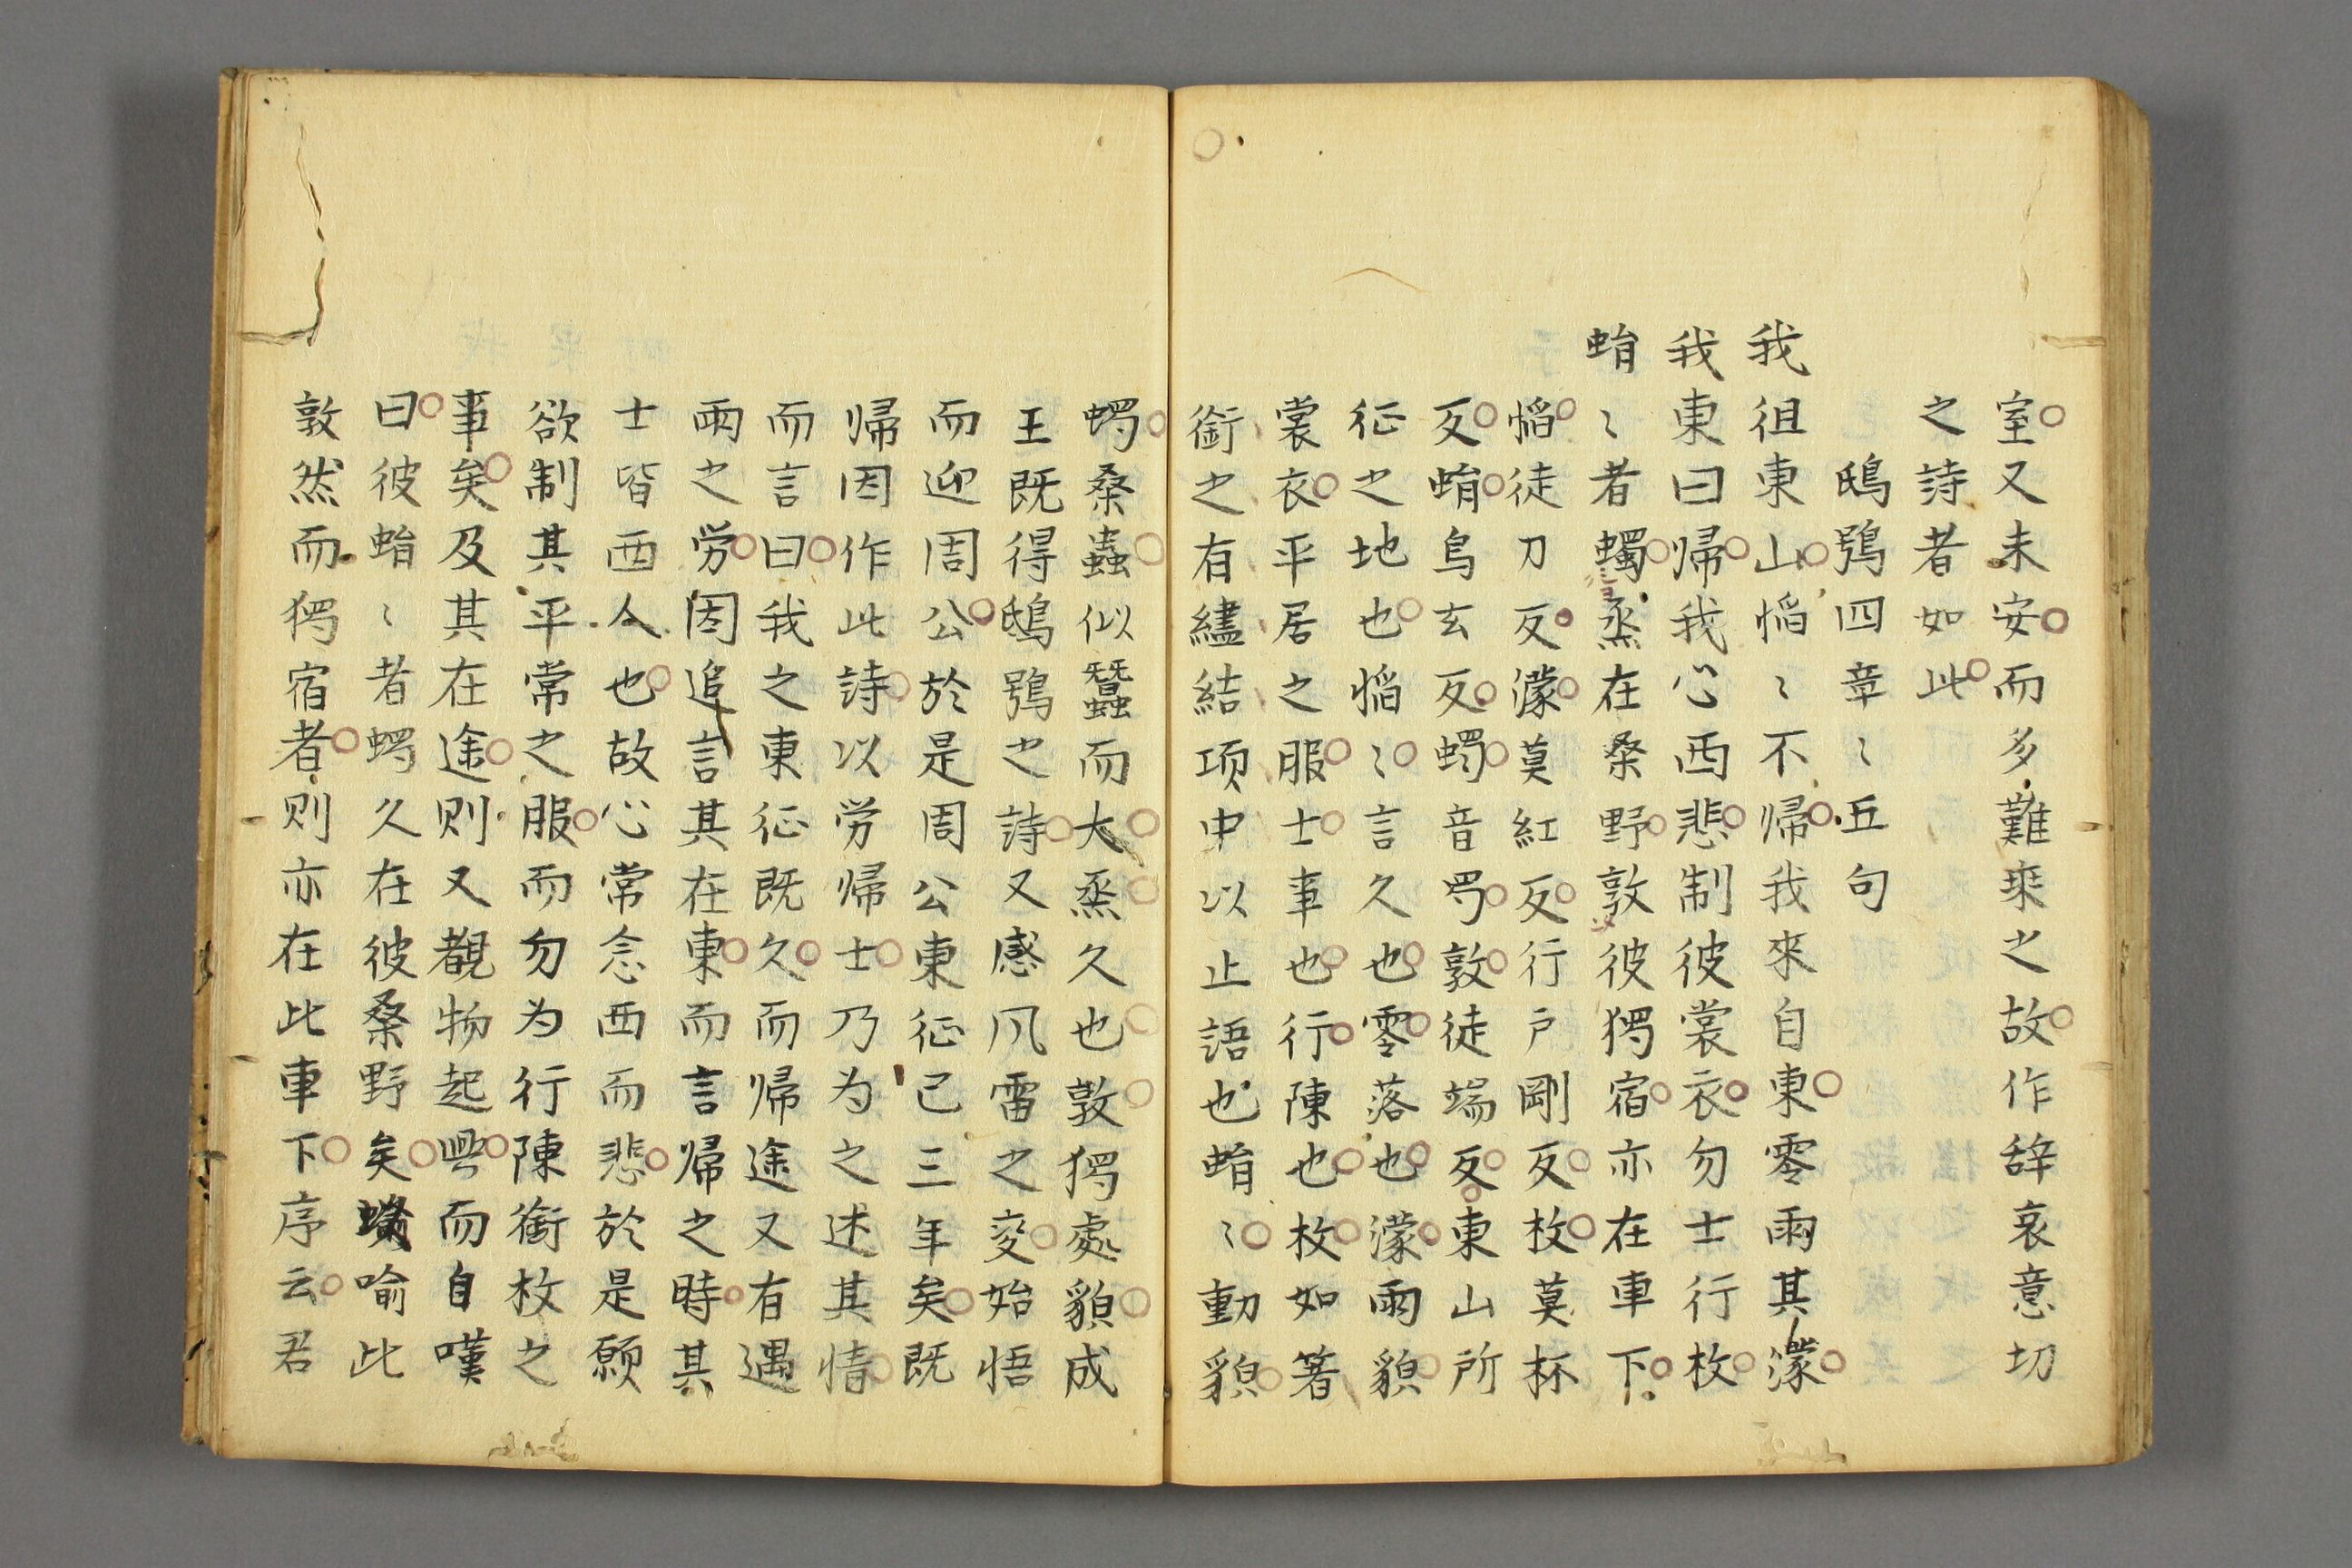 室又未安而多難乘之故作辞哀意切
之詩者如此
鴟鴞四章〻五句
我徂東山慆〻不帰我來自東零雨其濛
我東曰帰我心西悲制彼裳衣勿士行枚
蜎〻者蠋烝在桑野敦彼獨宿亦在車下
慆徒刀反濛莫紅反行戸剛反枚莫杯
反蜎烏玄反蠋音蜀敦徒端反東山所
征之地也慆〻言久也零落也濛雨貌
裳衣平居之服士事也行陳也枚如箸
銜之有繣結項中以止語也蜎〻動貌
蠋桑蟲似蠶而大烝久也敦獨處貌成
王既得鴟鴞之詩又感风雷之変始悟
而迎周公於是周公東征已三年矣既
帰因作此詩以労帰士乃为之述其情
而言曰我之東征既久而帰途又有遇
雨之労因追言其在東而言帰之時其
士皆西人也故心常念西而悲於是願
欲制其平常之服而勿为行陳銜枚之
事矣及其在途則又覩物起興而自嘆
曰彼蜎〻者蠋久在彼桑野矣喻此
敦然而獨宿者則亦在此車下序云君